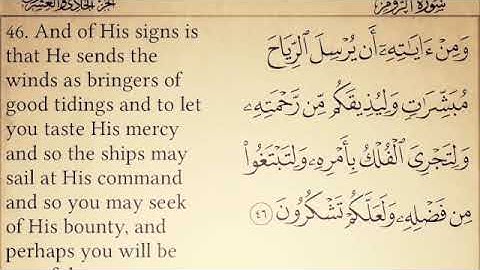 سورة الروم
الجزء الحادي والعشرون
46. And of His signs is
that He sends the
winds as bringers of
good tidings and to let
you taste His mercy
and so the ships may
sail at His command
and so you may seek
of His bounty, and
perhaps you will be
وَمِنْ ءَايَاتِهِۦٓ أَن يُرْسِلَ ٱلرِّيَاحَ
مُبَشِّرَاتٍ وَلِيُذِيقَكُم مِّن رَّحْمَتِهِۦ
وَلِتَجْرِىَ ٱلْفُلْكُ بِأَمْرِهِۦ وَلِتَبْتَغُوا۟
مِن فَضْلِهِۦ وَلَعَلَّكُمْ تَشْكُرُونَ ٤٦